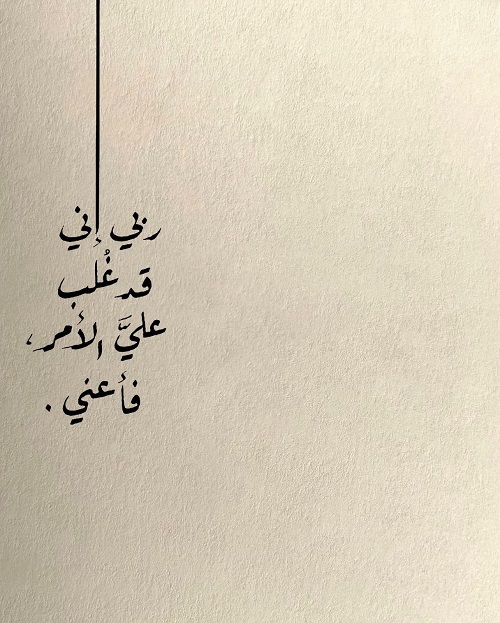 ربي إني
قد غُلب
عليَّ الأمر،
فأعني.